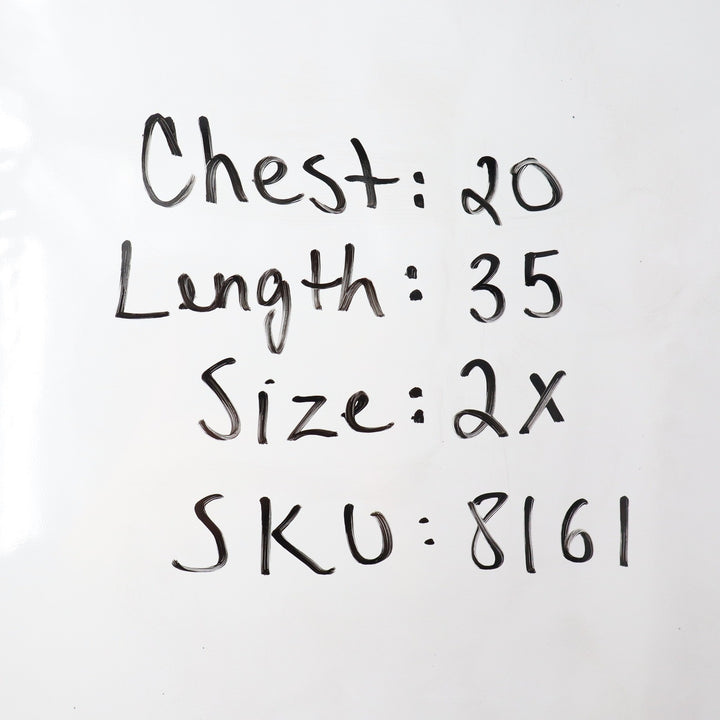 Chest: 20
Length: 35
Size: 2X
SKU: 8161